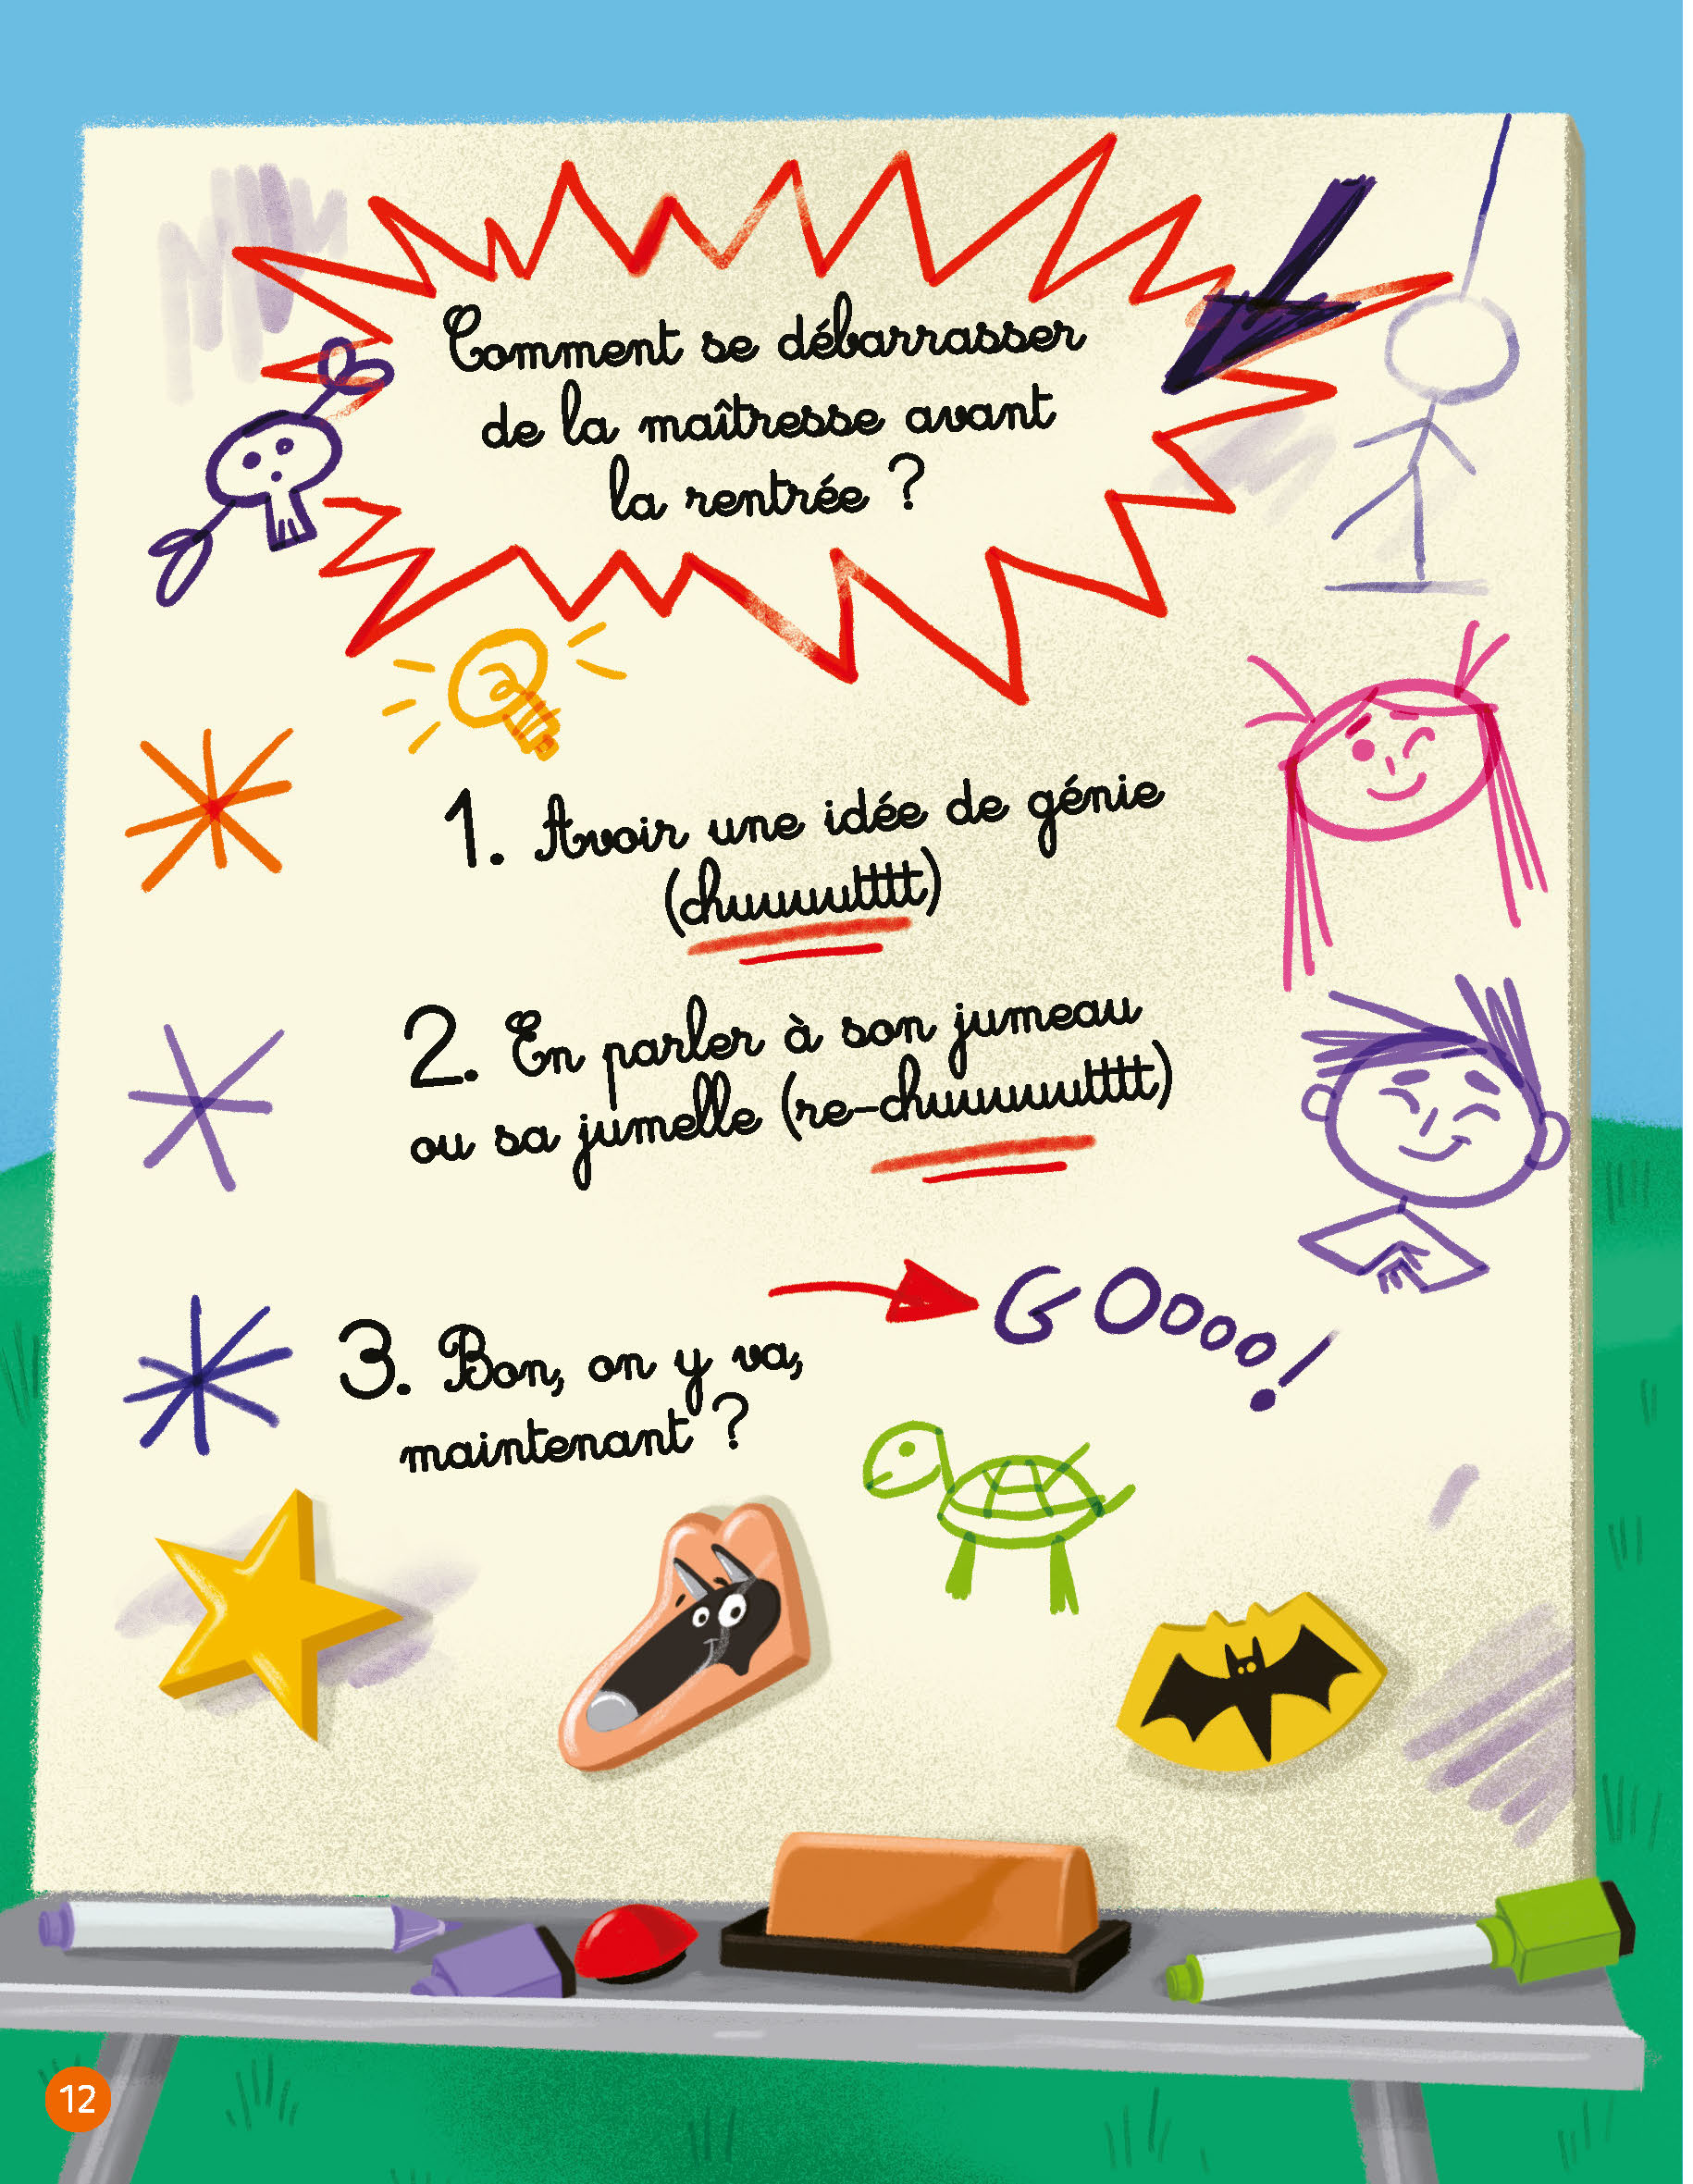 Comment se débarrasser
de la maîtresse avant
la rentrée ?
1. Avoir une idée de génie
(chuuuuutttt)
2. En parler à son jumeau
ou sa jumelle (re-chuuuuuutttt)
GOooo!
3. Bon, on y va,
maintenant ?
12